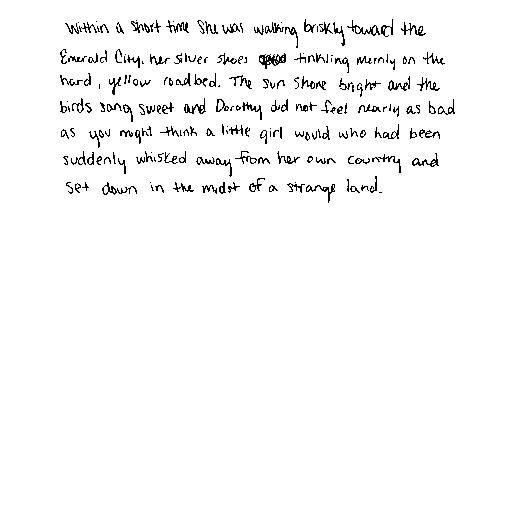 Within a short time she was walking briskly toward the
Emerald City, her silver shoes tinkling merrily on the
hard, yellow roadbed. The sun shone bright and the
birds sang sweet and Dorothy did not feel nearly as bad
as you might think a little girl would who had been
suddenly whisked away from her own country and
set down in the midst of a strange land.